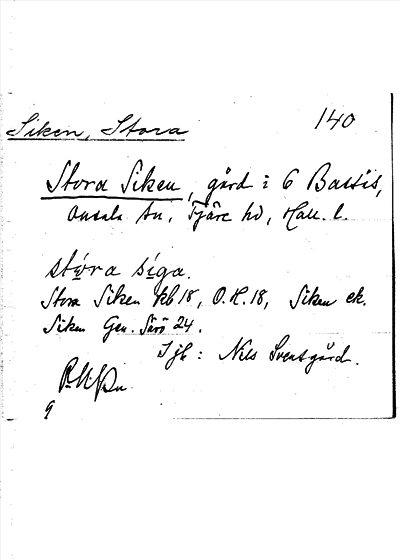 Siken, Stora
140
Stora Siken, gård i 6 Bassås,
Onsala sn, Fjäre hd, Hall. l.
stóra síga.
Stora Siken Kb 18, O.H. 18, Siken ek.
Siken Gen. Särö 24.
Ijh: Nils Svensgård.
9